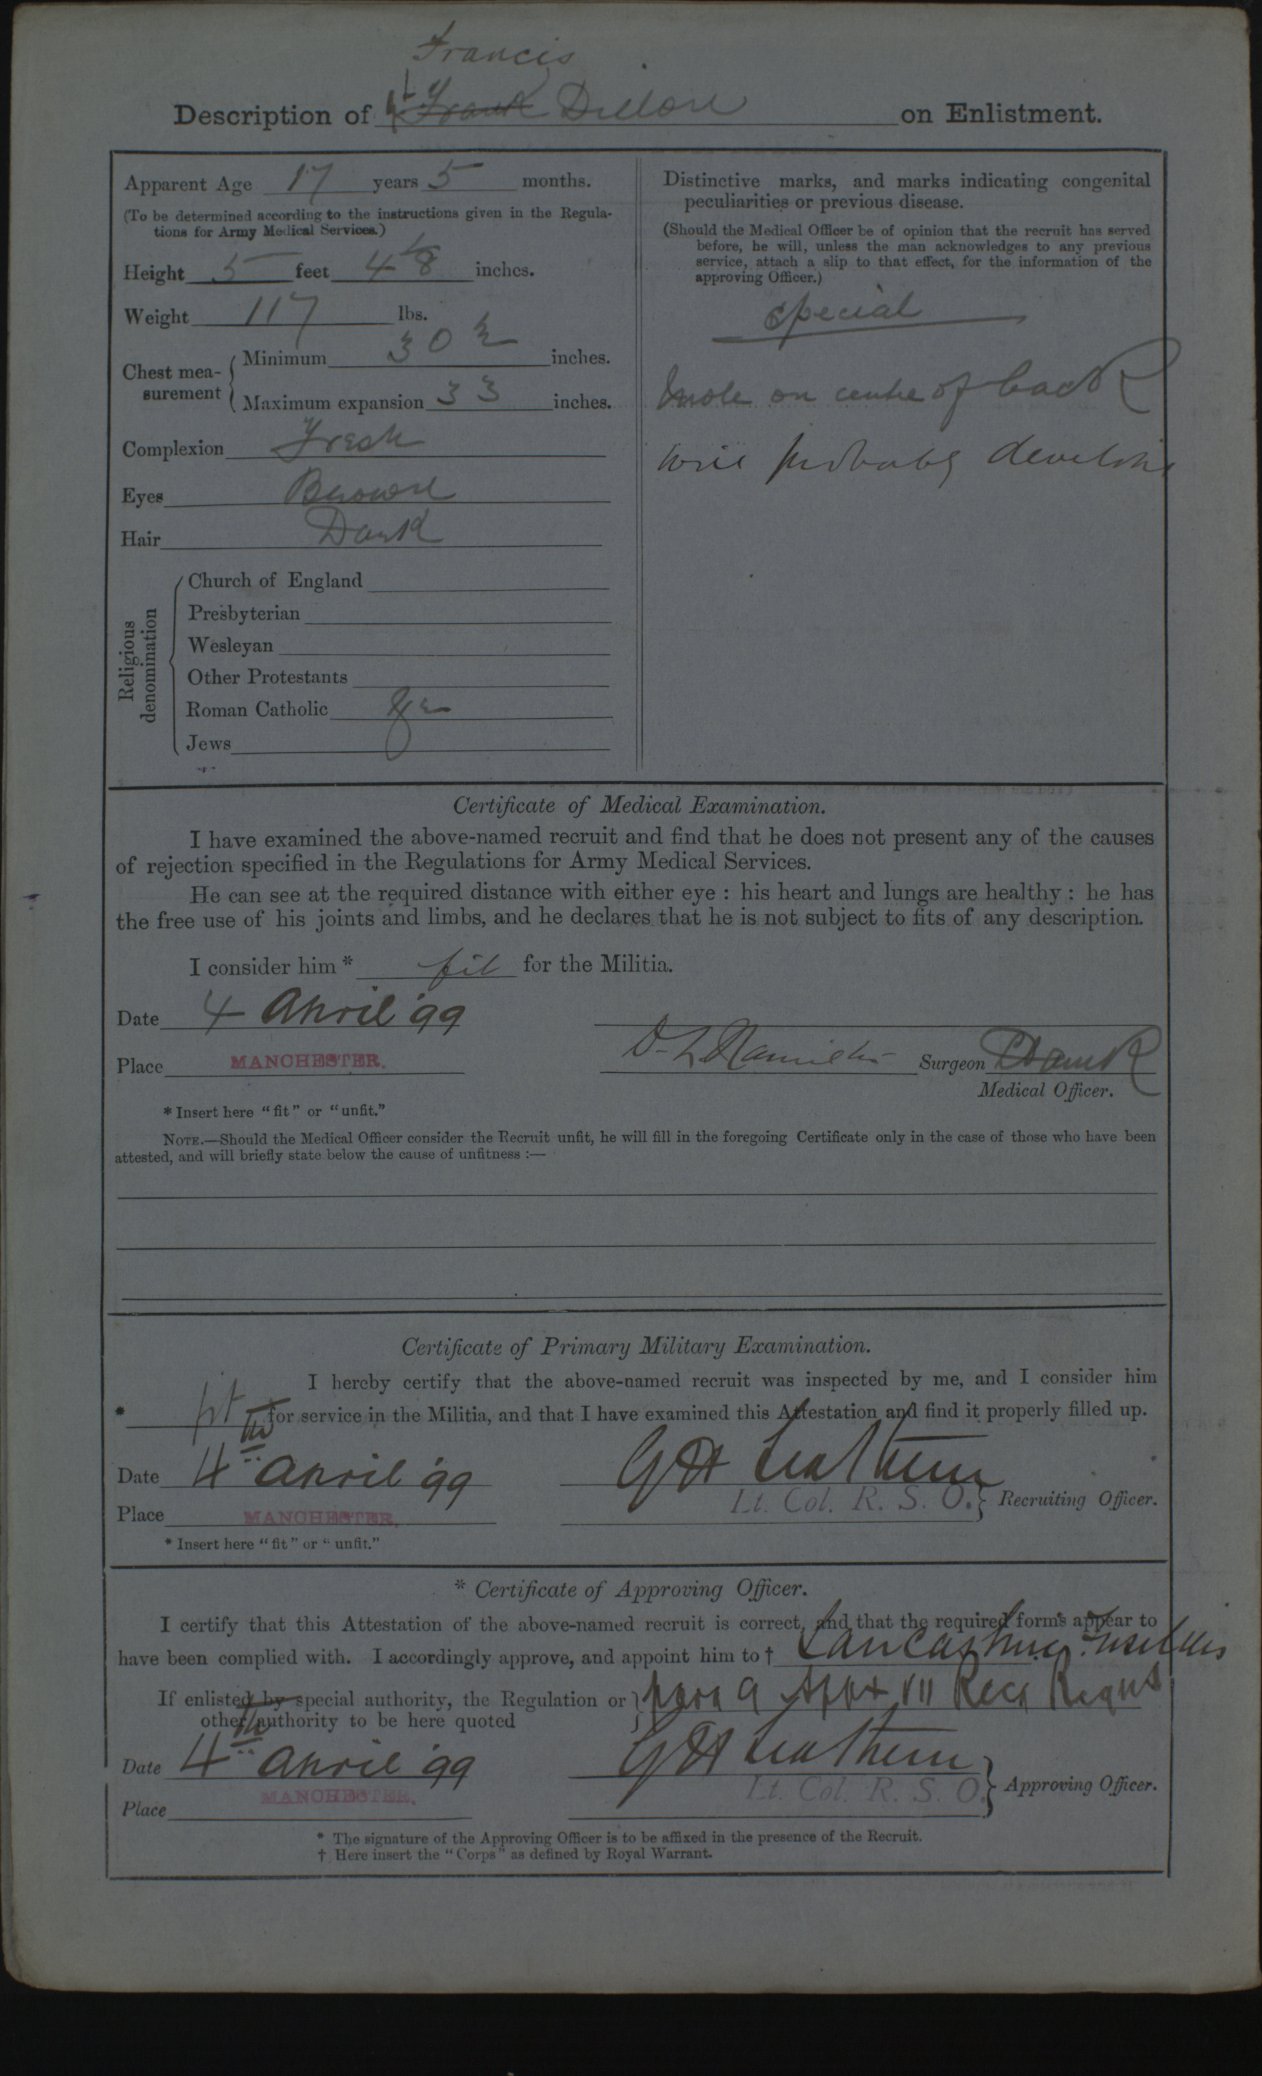 Francis
Description of Frank Dillon on Enlistment.
Apparent Age 17 years 5 months.
(To be determined according to the instructions given in the Regula-
tions for Army Medical Services.)
Height 5 feet 4 1/8 inches.
Weight 117 lbs.
Chest mea-
surement
Minimum 30 1/2 inches.
Maximum expansion 33 inches.
Complexion Fresh
Eyes Brown
Hair Dark
Religious
denomination
Church of England
Presbyterian
Wesleyan
Other Protestants
Roman Catholic
Jews
Distinctive marks, and marks indicating congenital
peculiarities or previous disease.
(Should the Medical Officer be of opinion that the recruit has served
before, he will, unless the man acknowledges to any previous
service, attach a slip to that effect, for the information of the
approving Officer.)
Special
mole on centre of back
will probably develop
Certificate of Medical Examination.
I have examined the above-named recruit and find that he does not present any of the causes
of rejection specified in the Regulations for Army Medical Services.
He can see at the required distance with either eye : his heart and lungs are healthy : he has
the free use of his joints and limbs, and he declares that he is not subject to fits of any description.
I consider him * fit for the Militia.
Date 4 April '99
Place MANCHESTER. Surgeon
Medical Officer.
* Insert here "fit" or "unfit."
NOTE.—Should the Medical Officer consider the Recruit unfit, he will fill in the foregoing Certificate only in the case of those who have been
attested, and will briefly state below the cause of unfitness :—
Certificate of Primary Military Examination.
I hereby certify that the above-named recruit was inspected by me, and I consider him
* fit for service in the Militia, and that I have examined this Attestation and find it properly filled up.
Date 4th April '99 G H Leathem
Lt. Col. R. S. O. Recruiting Officer.
Place MANCHESTER.
* Insert here "fit" or "unfit."
* Certificate of Approving Officer.
I certify that this Attestation of the above-named recruit is correct, and that the required forms appear to
have been complied with. I accordingly approve, and appoint him to † Lancashire Fusiliers
If enlisted by special authority, the Regulation or
other authority to be here quoted
para 9 Appx VII Recg Regns
Date 4th April '99 G H Leathem
Lt. Col. R. S. O. Approving Officer.
Place MANCHESTER.
* The signature of the Approving Officer is to be affixed in the presence of the Recruit.
† Here insert the "Corps" as defined by Royal Warrant.